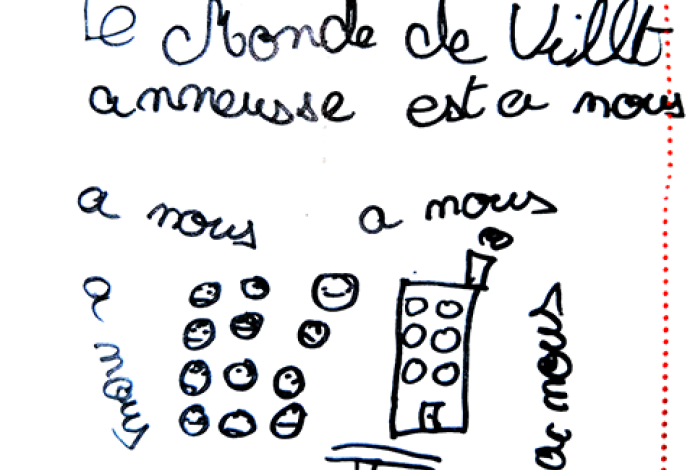 Le Monde de Villt
anneusse est a nous
a nous
a nous
a nous
a nous